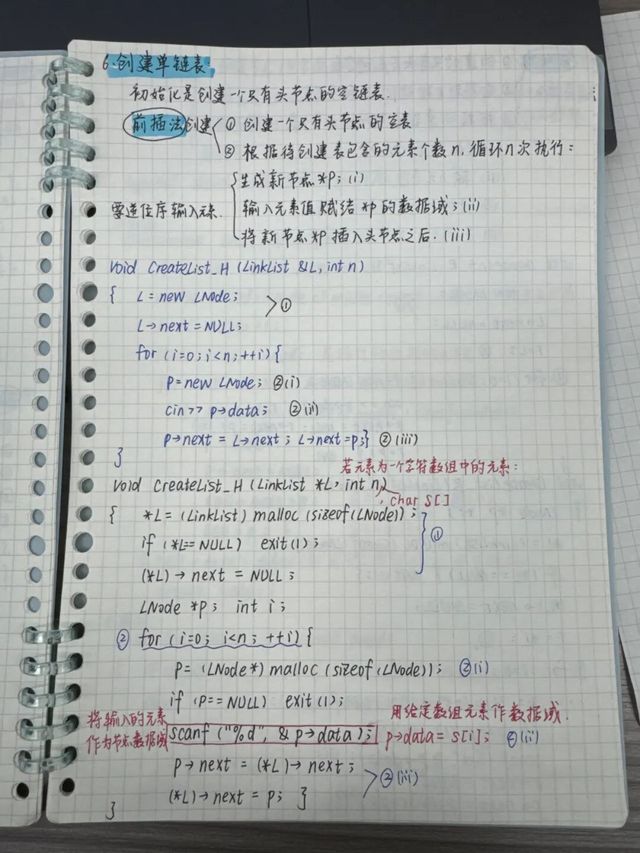 6.创建单链表
初始化是创建一个只有头节点的空链表.
前插法创建 ① 创建一个只有头节点的空表
② 根据待创建表包含的元素个数n,循环n次执行:
生成新节点*p;(i)
需逆位序输入元素. 输入元素值赋给*p的数据域;(ii)
将新节点*p插入头节点之后.(iii)
void CreateList_H (LinkList &L, int n)
{ L=new LNode; ①
L→next=NULL;
for (i=0;i<n;++i){
p=new LNode; ②(i)
cin>> p→data; ②(ii)
p→next = L→next; L→next=p;} ②(iii)
}
若元素为一个字符数组中的元素:
void CreateList_H (LinkList *L, int n)
, char S[]
{ *L=(LinkList) malloc (sizeof(LNode)); ①
if (*L==NULL) exit(1);
(*L)→next = NULL;
LNode *p; int i;
② for (i=0; i<n; ++i){
p= (LNode*) malloc (sizeof(LNode)); ②(i)
if (p==NULL) exit(1);
将输入的元素 用给定数组元素作数据域.
作为节点数据域 scanf ("%d", & p→data); p→data= s[i]; ②(ii)
p→next = (*L)→next;
(*L)→next = p; } ②(iii)
}